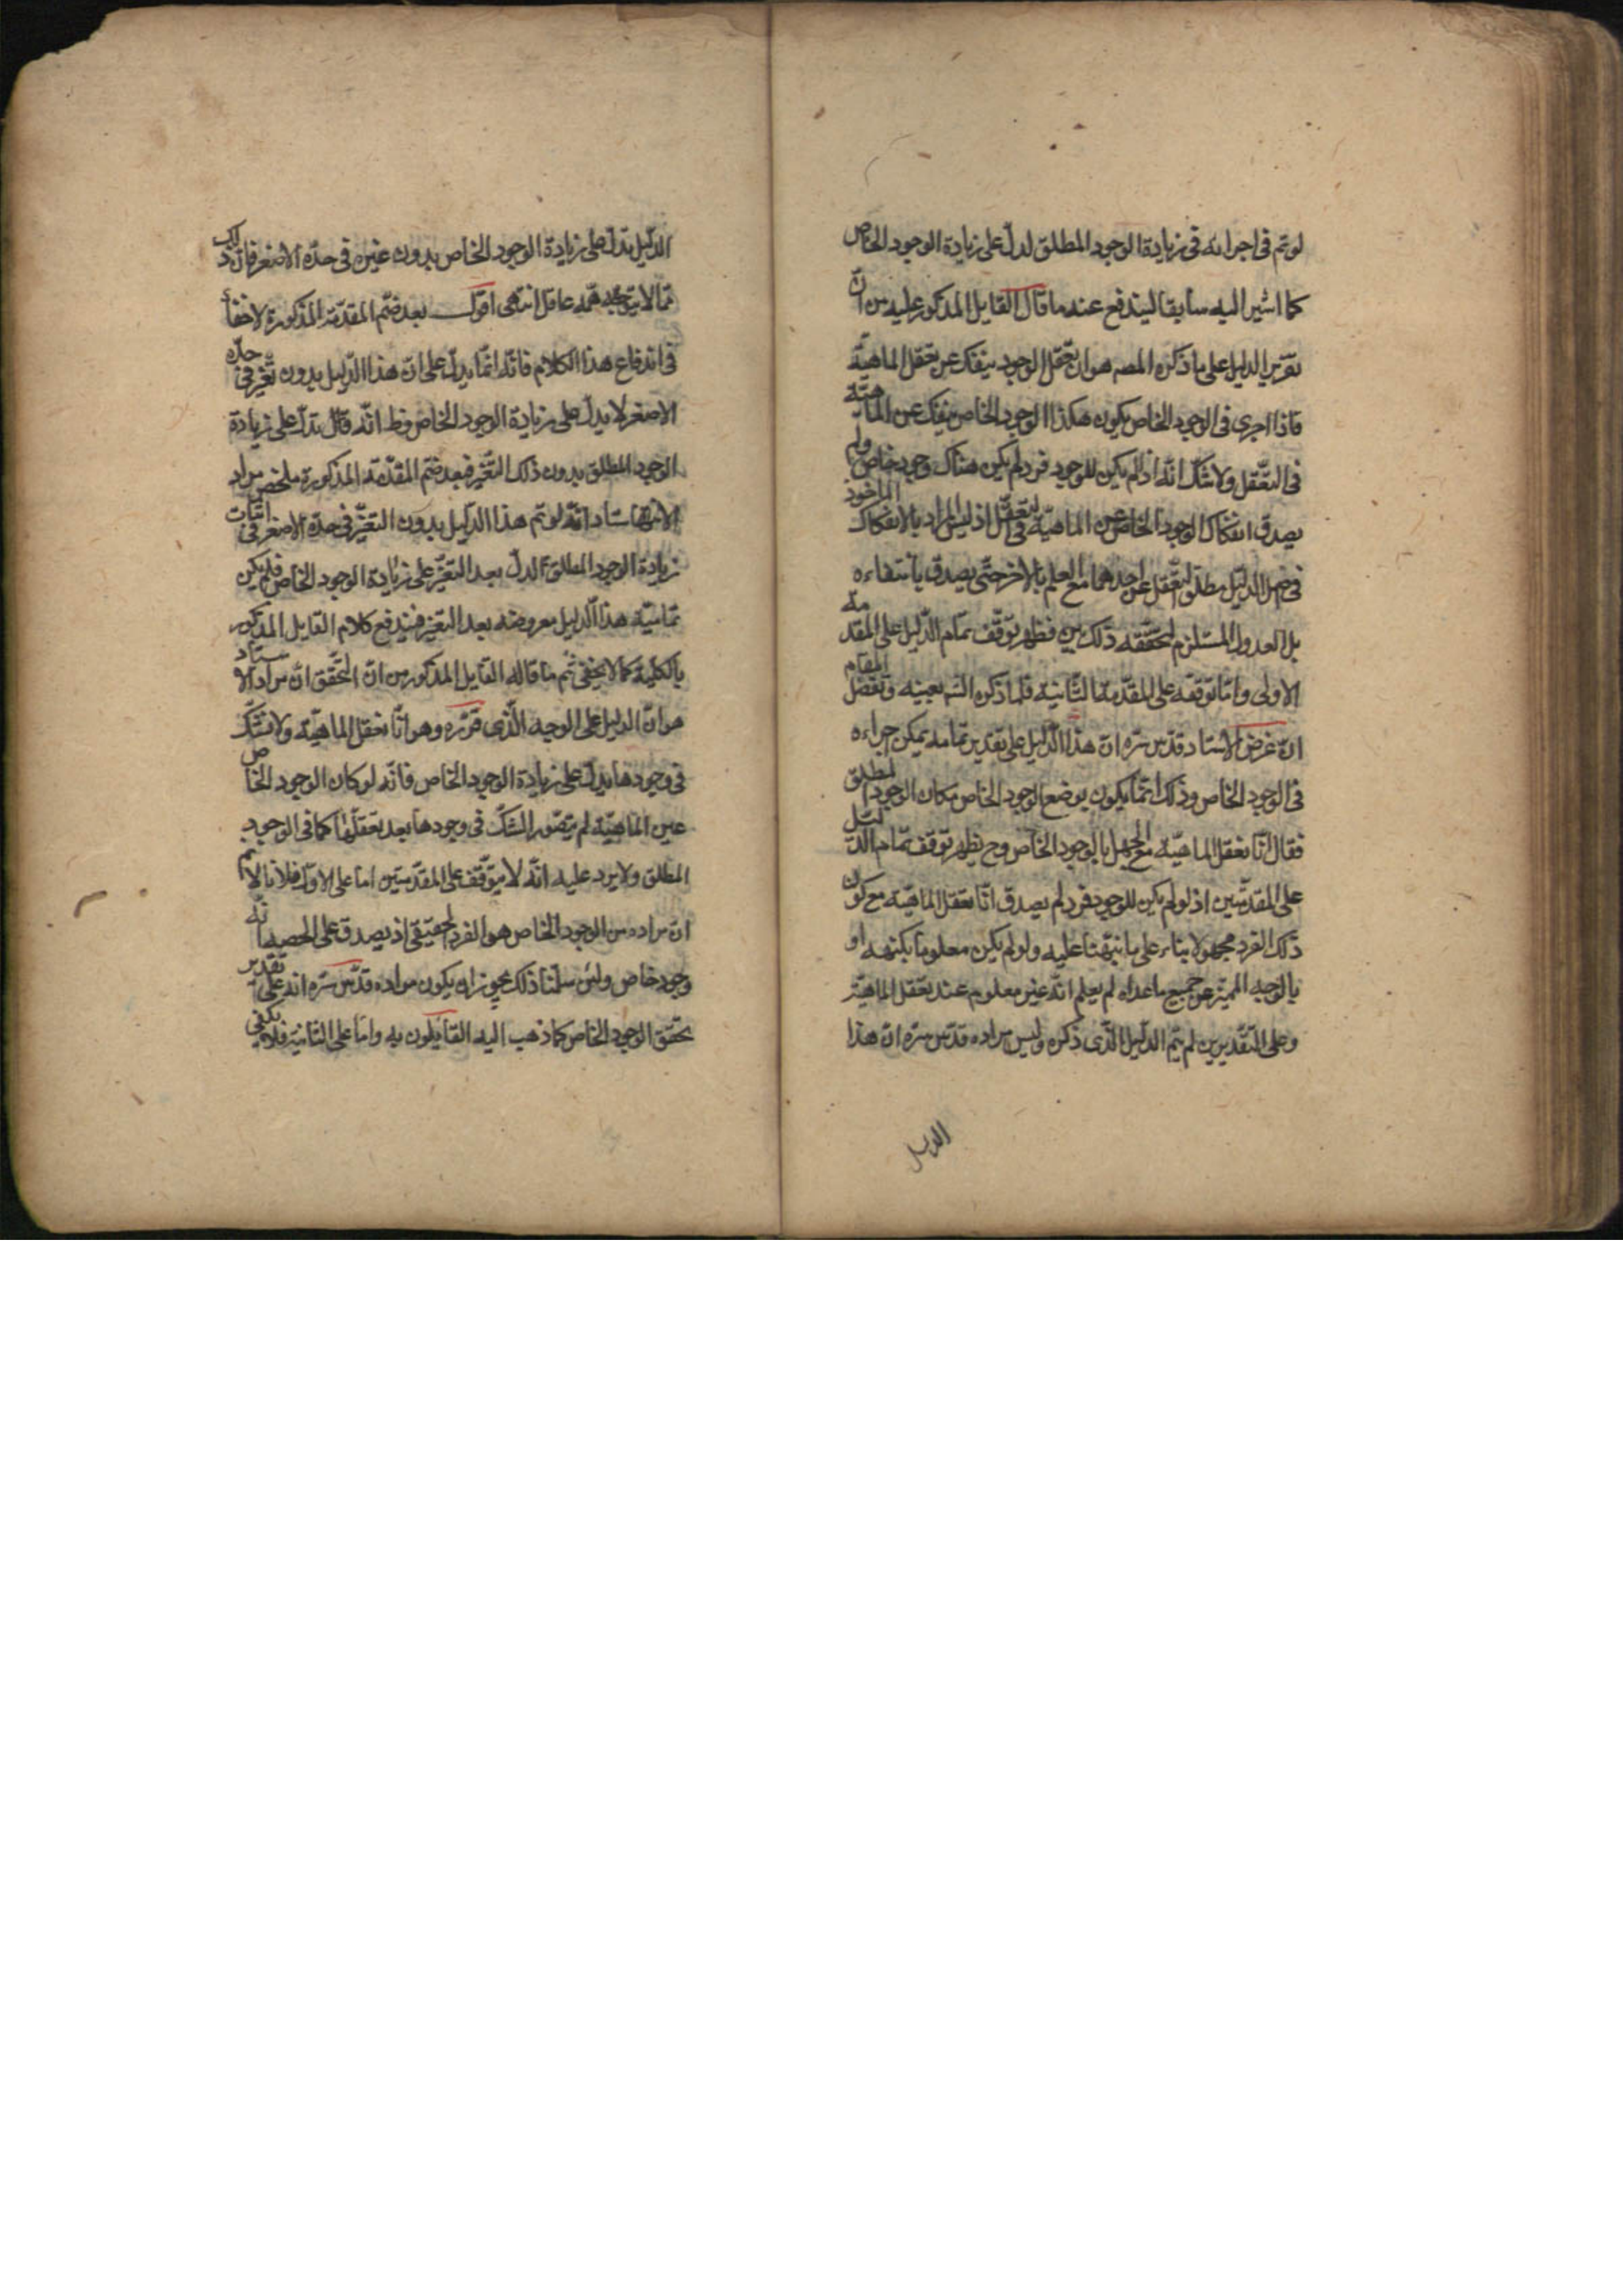 لو تم فى اجرائه فى زيادة الوجود المطلق لدل على زيادة الوجود الخاص
كما اشير اليه سابقا ليندفع عنه ما قال القايل المذكور عليه من ان
تقرير الدليل على ما ذكره المصـ هو ان تعقل الوجود ينفك عن تعقل الماهية
فاذا اجرى فى الوجود الخاص يكون هكذا الوجود الخاص ينفك عن الماهية
فى التعقل ولا شك انه اذ لم يكن للوجود فرد لم يكن هناك وجود خاص ولم
يصدق انفكاك الوجود الخاص عن الماهية فى التعقل اذ ليس المراد بالانفكاك الماخوذ
فى الدليل مطلق تعقل احدهما مع العلم بالاخر حتى يصدق بانتفاءه
بل العدول المستلزم لتحققه ذلك بين فظهر توقف تمام الدليل على المقدمة
الاولى واما توقفه على المقدمة الثانية فلما ذكره الشـ بعينه وتفصل المقام
ان غرض الاستاد قدس سره ان هذا الدليل على تقدير تمامه يمكن اجراءه
فى الوجود الخاص وذلك انما يكون بوضع الوجود الخاص مكان الوجود المطلق
فقال انا نعقل الماهية مع الجهل بالوجود الخاص وح يظهر توقف تمام الدليل
على المقدمتين اذ لو لم يكن للوجود فرد لم يصدق انا نعقل الماهية مع كون
ذلك الفرد مجهولا بناء على ما نبهنا عليه ولو لم يكن معلوما بكنهه او
بالوجه المميز عن جميع ما عداه لم يعلم انه غير معلوم عند تعقل الماهية
وعلى التقديرين لم يتم الدليل الذى ذكره وليس مراده قدس سره ان هذا
الدليل
الدليل يدل على زيادة الوجود الخاص بدون غيره فى حده الاصغر فان ذلك
مما لا يتوجه همه عاقل انتهى اقول بعد ضم المقدمة المذكورة لا خفأ
فى اندفاع هذا الكلام فانه انما يدل على ان هذا الدليل بدون تغير فى حده
الاصغر لا يدل على زيادة الوجود الخاص وظ انه قال يدل على زيادة
الوجود المطلق بدون ذلك التغير فبعد ضم المقدمة المذكورة ملخص مراد
الاستاد انه لو تم هذا الدليل بدون التغير فى حده الاصغر فى اثبات
زيادة الوجود المطلق لدل بعد التغير على زيادة الوجود الخاص فلم يكن
تمامية هذا الدليل معروضه بعد التغير فيندفع كلام القايل المذكور
بالكلية كما لا يخفى ثم ما قاله القايل المذكور من ان التحقق ان مراد الاستاد
هو ان الدليل على الوجه الذى قرره وهو انا نعقل الماهية ولا نشك
فى وجودها يدل على زيادة الوجود الخاص فانه لو كان الوجود الخاص
عين الماهية لم يتصور الشك فى وجودها بعد تعقلها كما فى الوجود
المطلق ولا يرد عليه انه لا يتوقف على المقدمتين اما على الاول فلانا لانم
ان مراده من الوجود الخاص هو الفرد الحقيقى اذ يصدق على الحصه انه
وجود خاص ولئن سلمنا ذلك يجوز ان يكون مراده قدس سره انه على تقدير
تحقق الوجود الخاص كما ذهب اليه القايلون به واما على الثانية فلا يكفى